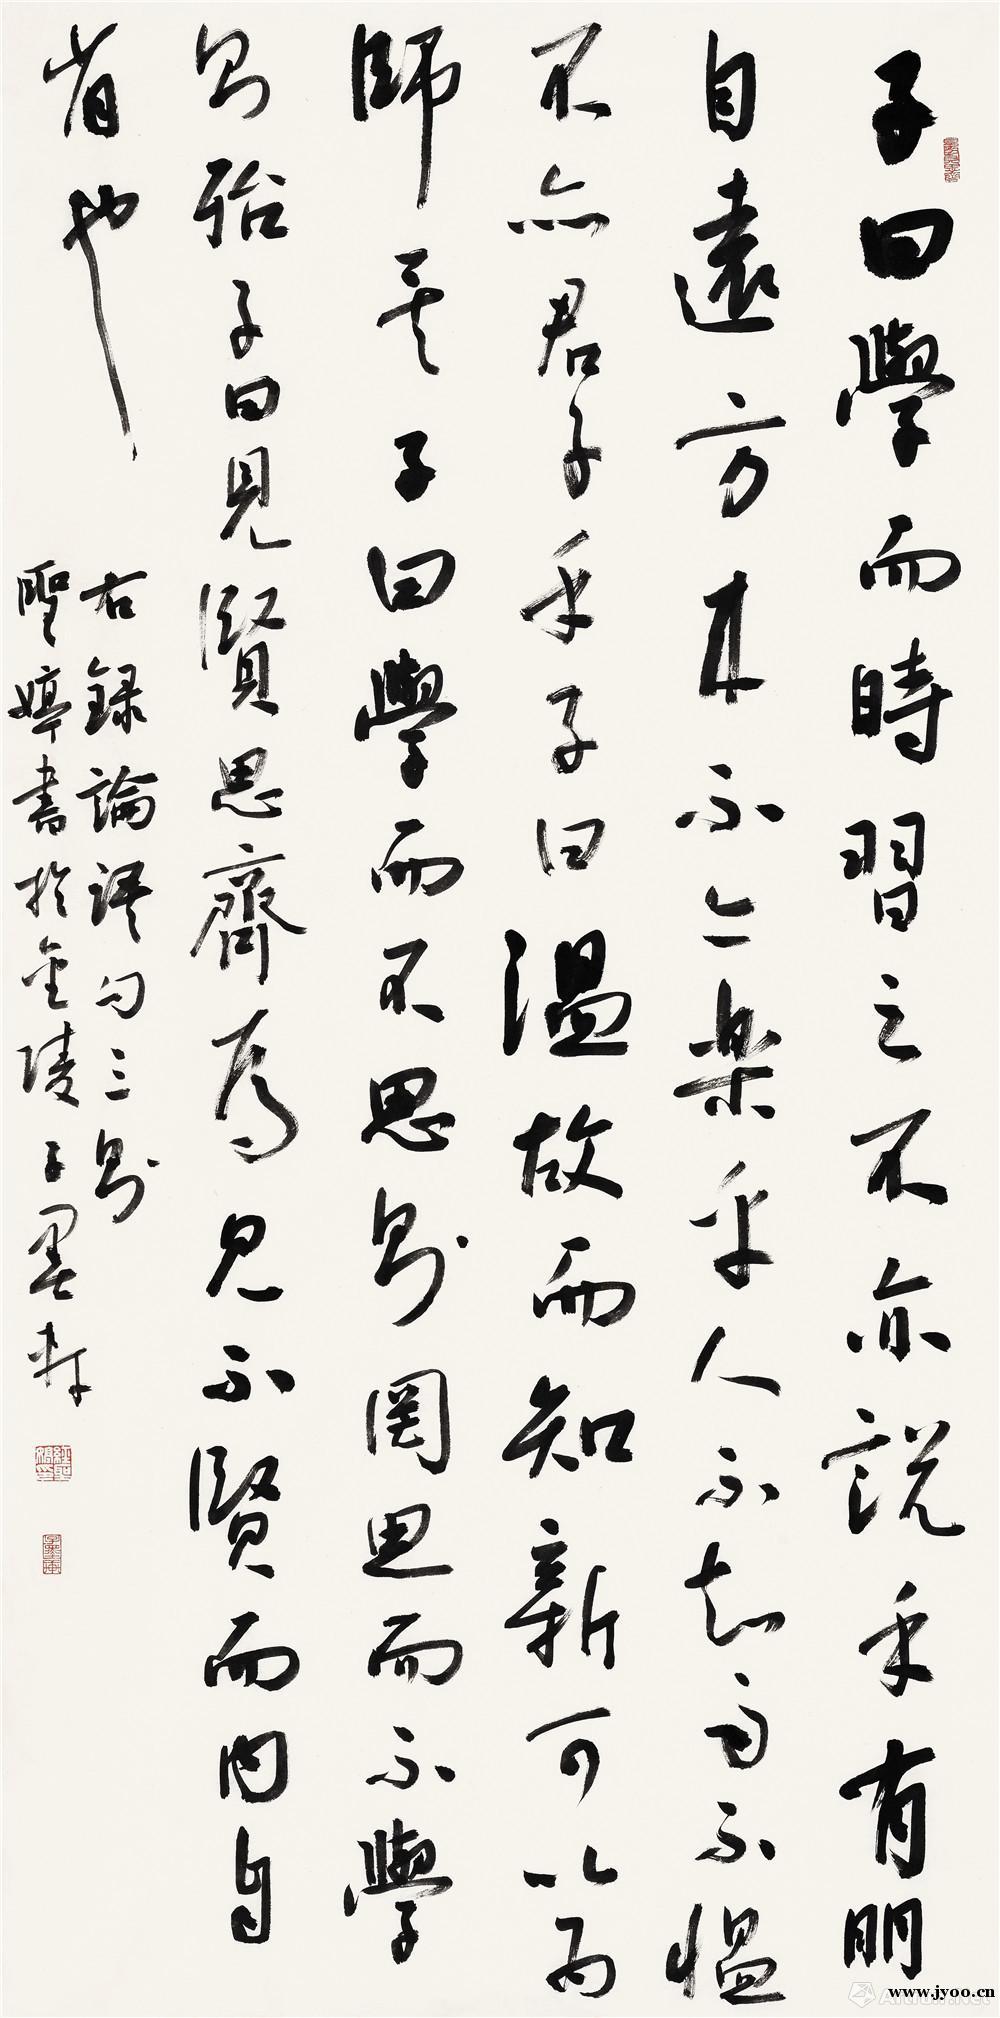 子曰學而時習之不亦説乎有朋
自遠方来不亦樂乎人不知而不愠
不亦君子乎子曰温故而知新可以為
師矣子曰學而不思則罔思而不學
則殆子曰見賢思齊焉見不賢而内自
省也
右録論語句三則
聖婷書於金陵子墨軒
Artron.Net
www.jyoo.cn